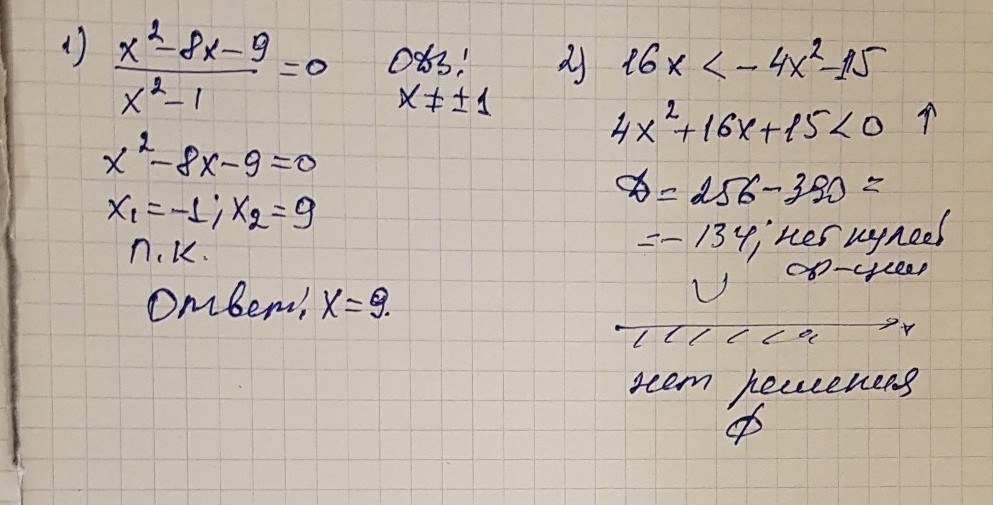 1) x²-8x-9 / x²-1 = 0 ОДЗ: x ≠ ±1
x²-8x-9=0
x₁=-1; x₂=9
п.к.
Ответ: x=9.
2) 16x < -4x²-15
4x²+16x+15<0 ↑
D = 256-390 =
=-134; нет нулей
ф-ции
нет решения
∅